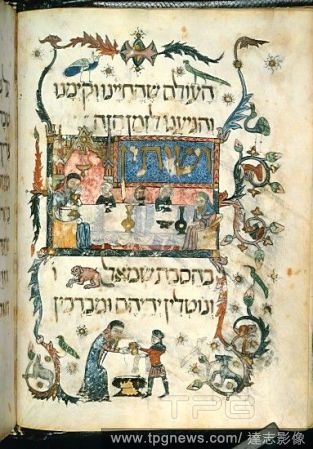 העולם שהחיינו וקימנו
והגיענו לזמן הזה
ושותין
בהסבת שמאל ו
ונוטלין ידיהם ומברכין
TPG
www.tpgnews.com/ 達志影像